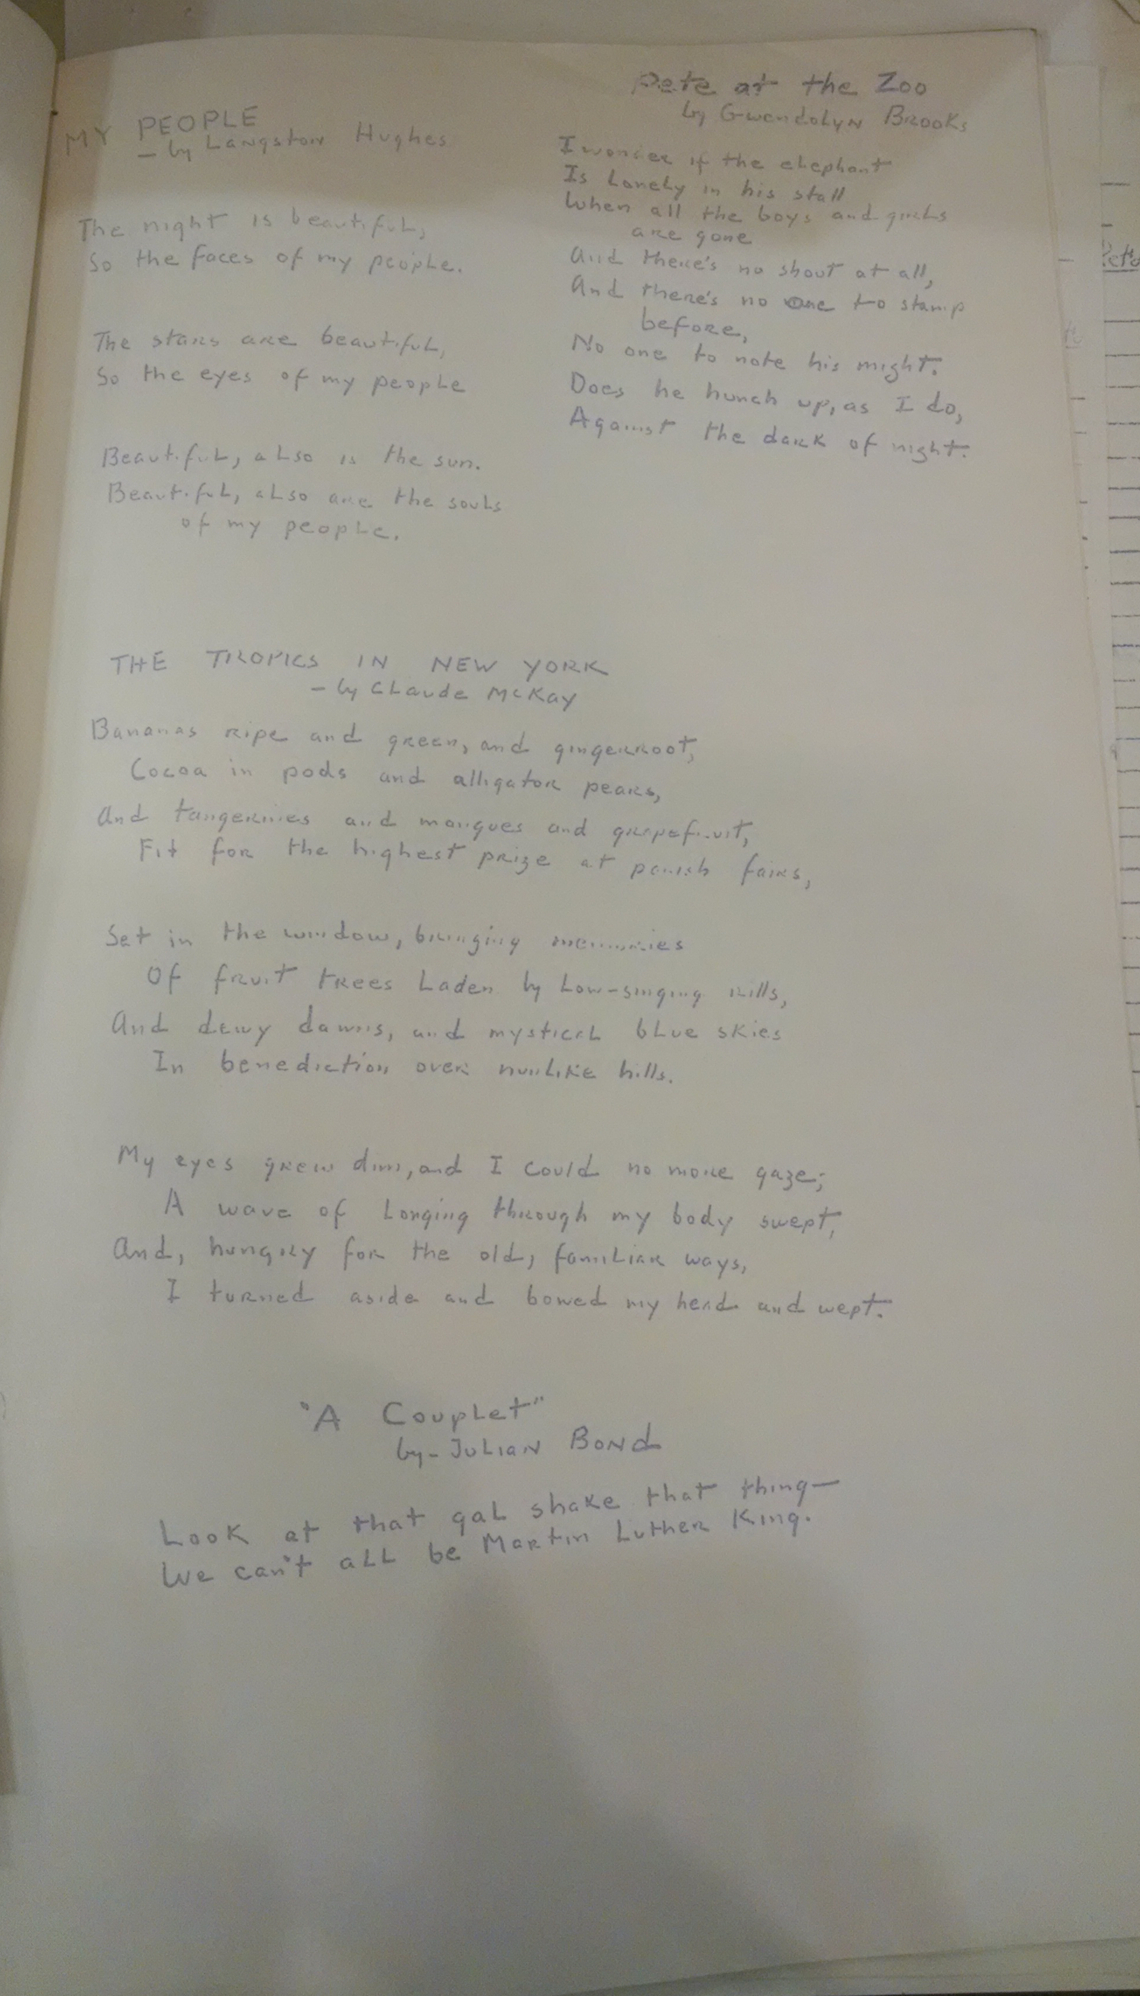 MY PEOPLE
- by Langston Hughes
The night is beautiful,
So the faces of my people.
The stars are beautiful,
So the eyes of my people
Beautiful, also is the sun.
Beautiful, also are the souls
of my people.
Pete at the Zoo
by Gwendolyn Brooks
I wonder if the elephant
Is Lonely in his stall
When all the boys and girls
are gone
And there's no shout at all,
And there's no one to stamp
before,
No one to note his might.
Does he hunch up, as I do,
Against the dark of night.
THE TROPICS IN NEW YORK
- by Claude McKay
Bananas ripe and green, and gingerroot,
Cocoa in pods and alligator pears,
And tangerines and mangues and grapefruit,
Fit for the highest prize at parish fairs,
Set in the window, bringing memories
Of fruit trees Laden by Low-singing rills,
And dewy dawns, and mystical blue skies
In benediction over nunlike hills.
My eyes grew dim, and I could no more gaze;
A wave of Longing through my body swept,
And, hungry for the old, familiar ways,
I turned aside and bowed my head and wept.
"A Couplet"
by - Julian Bond
Look at that gal shake that thing—
We can't all be Martin Luther King.